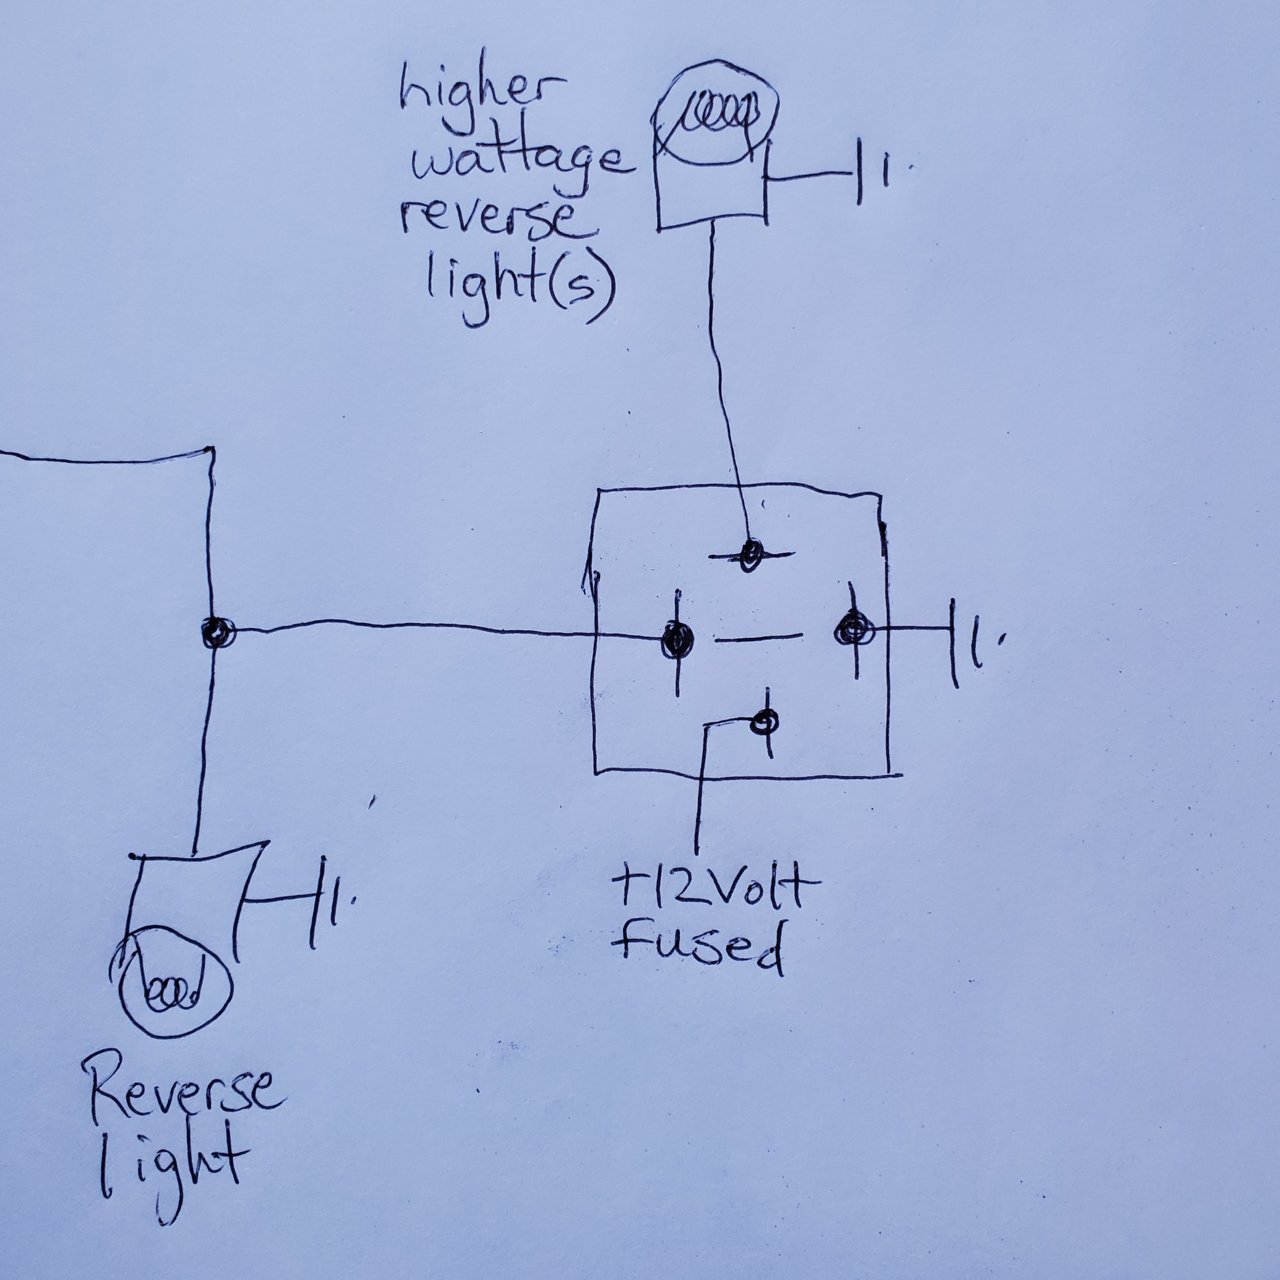 higher
wattage
reverse
light(s)
+12Volt
fused
Reverse
light